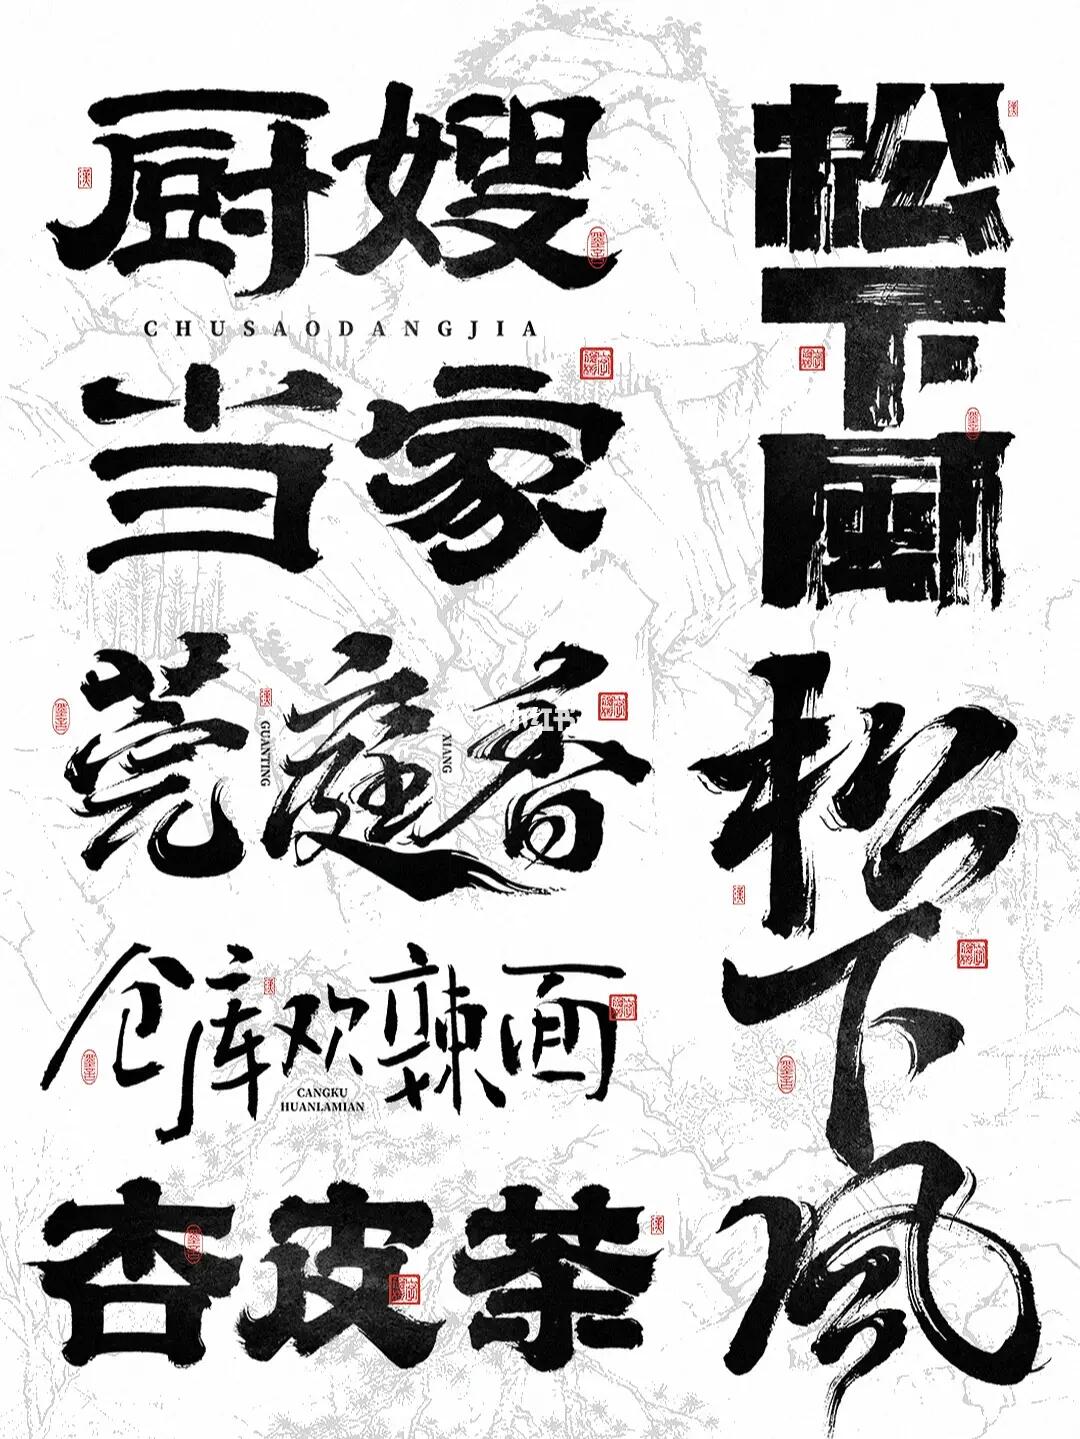 厨嫂
CHUSAODANGJIA
当家
莞庭香
GUANTING
XIANG
仓库欢辣面
CANGKU
HUANLAMIAN
杏皮茶
松下風
松下風
小红书